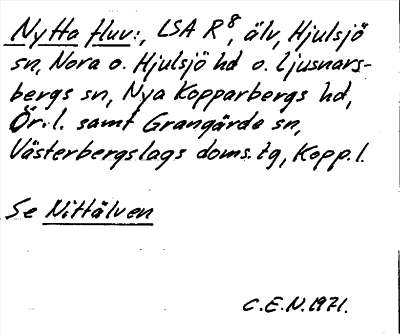 Nytta fluv:, LSA R8, älv, Hjulsjö
sn, Nora o. Hjulsjö hd o. Ljusnars-
bergs sn, Nya Kopparbergs hd,
Ör. l. samt Grangärde sn,
Västerbergslags doms. tg, Kopp. l.
Se Nittälven
C.E.N. 1971.